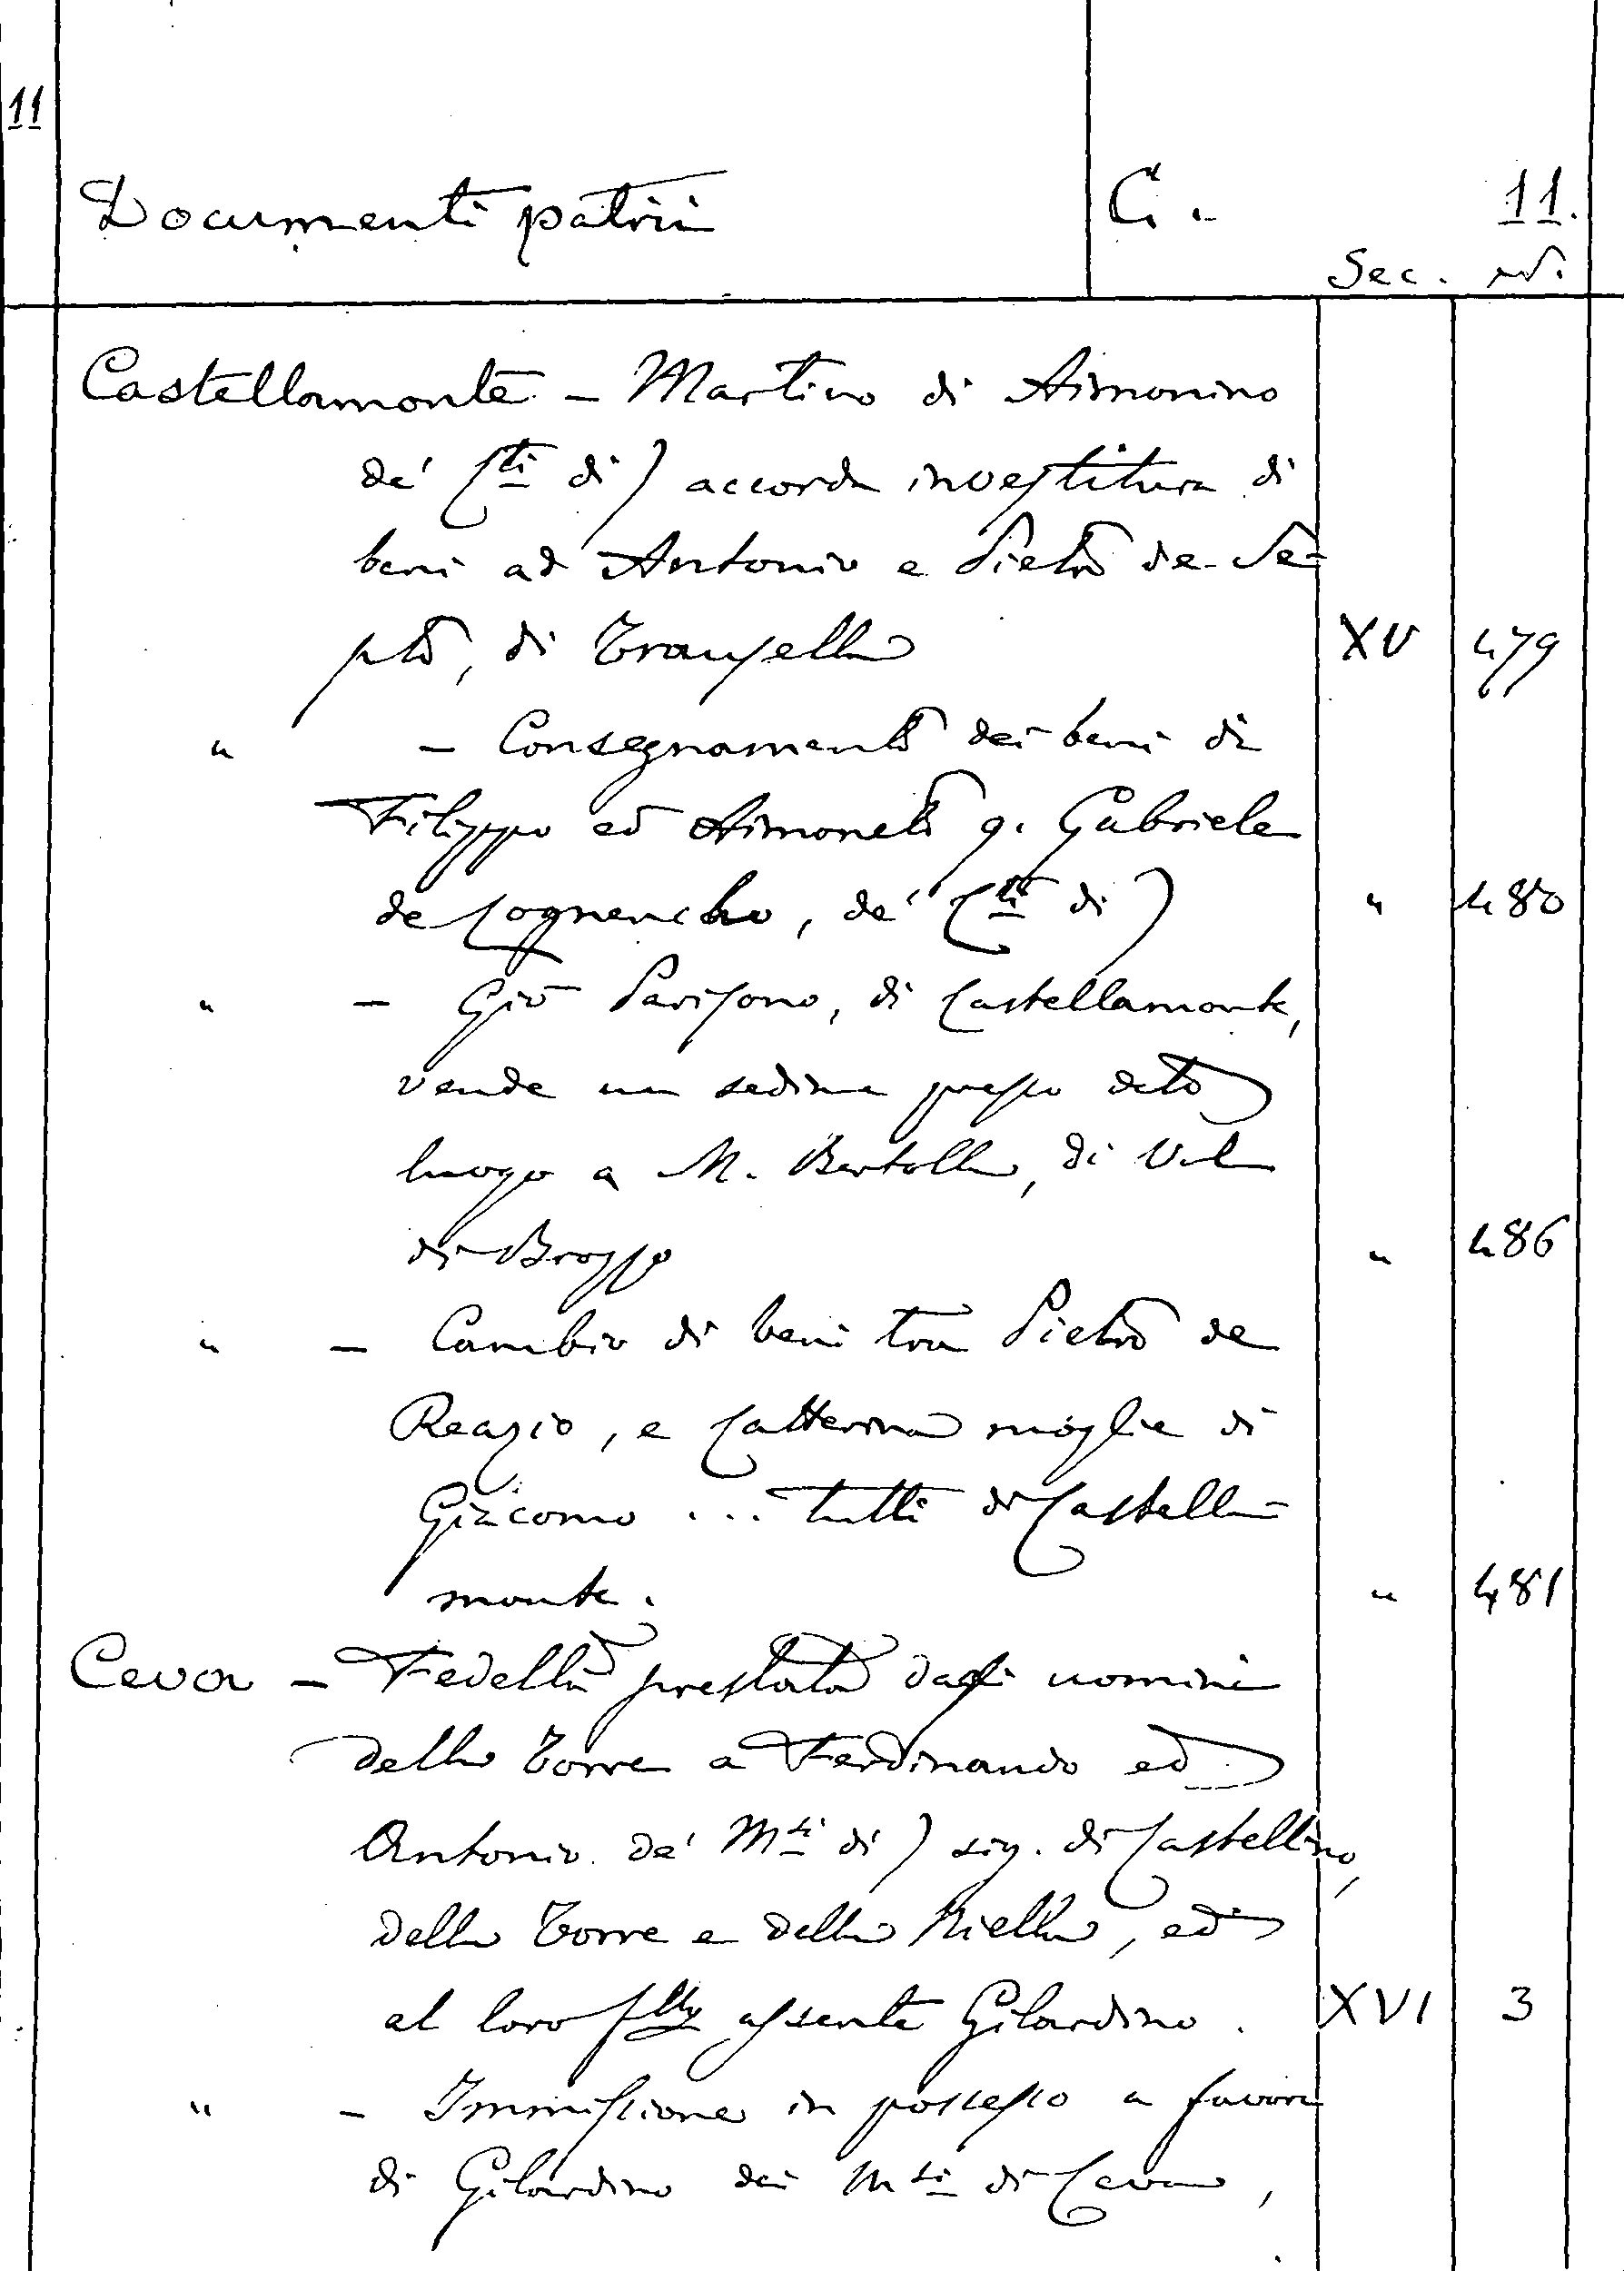 11
Documenti patrii
C. 11.
Sec. N.
Castellamonte - Martino di Aimonino
de' C.ti di) accorda investitura di
beni ad Antonio e Pietro de Se-
pto, di Trausella XV 479
" - Consegnamento dei beni di
Filippo ed Aimoneto q. Gabriele
de Cognencho, de' C.ti di) " 480
" - Gio Parisono, di Castellamonte,
vende un sedime presso detto
luogo a M. Bertolla, di Val
di Brosso " 486
" - Cambio di beni tra Pietro de
Reazio, e Catterina moglie di
Giacomo ... tutti di Castella-
monte. " 481
Ceva - Fedeltà prestata dagli uomini
della Torre a Ferdinando ed
Antonio de' M.si di) sig. di Castellino,
della Torre e della Niella, ed
al loro f.llo assente Gilardino. XVI 3
" - Immissione in possesso a favore
di Gilardino dei M.si di Ceva,